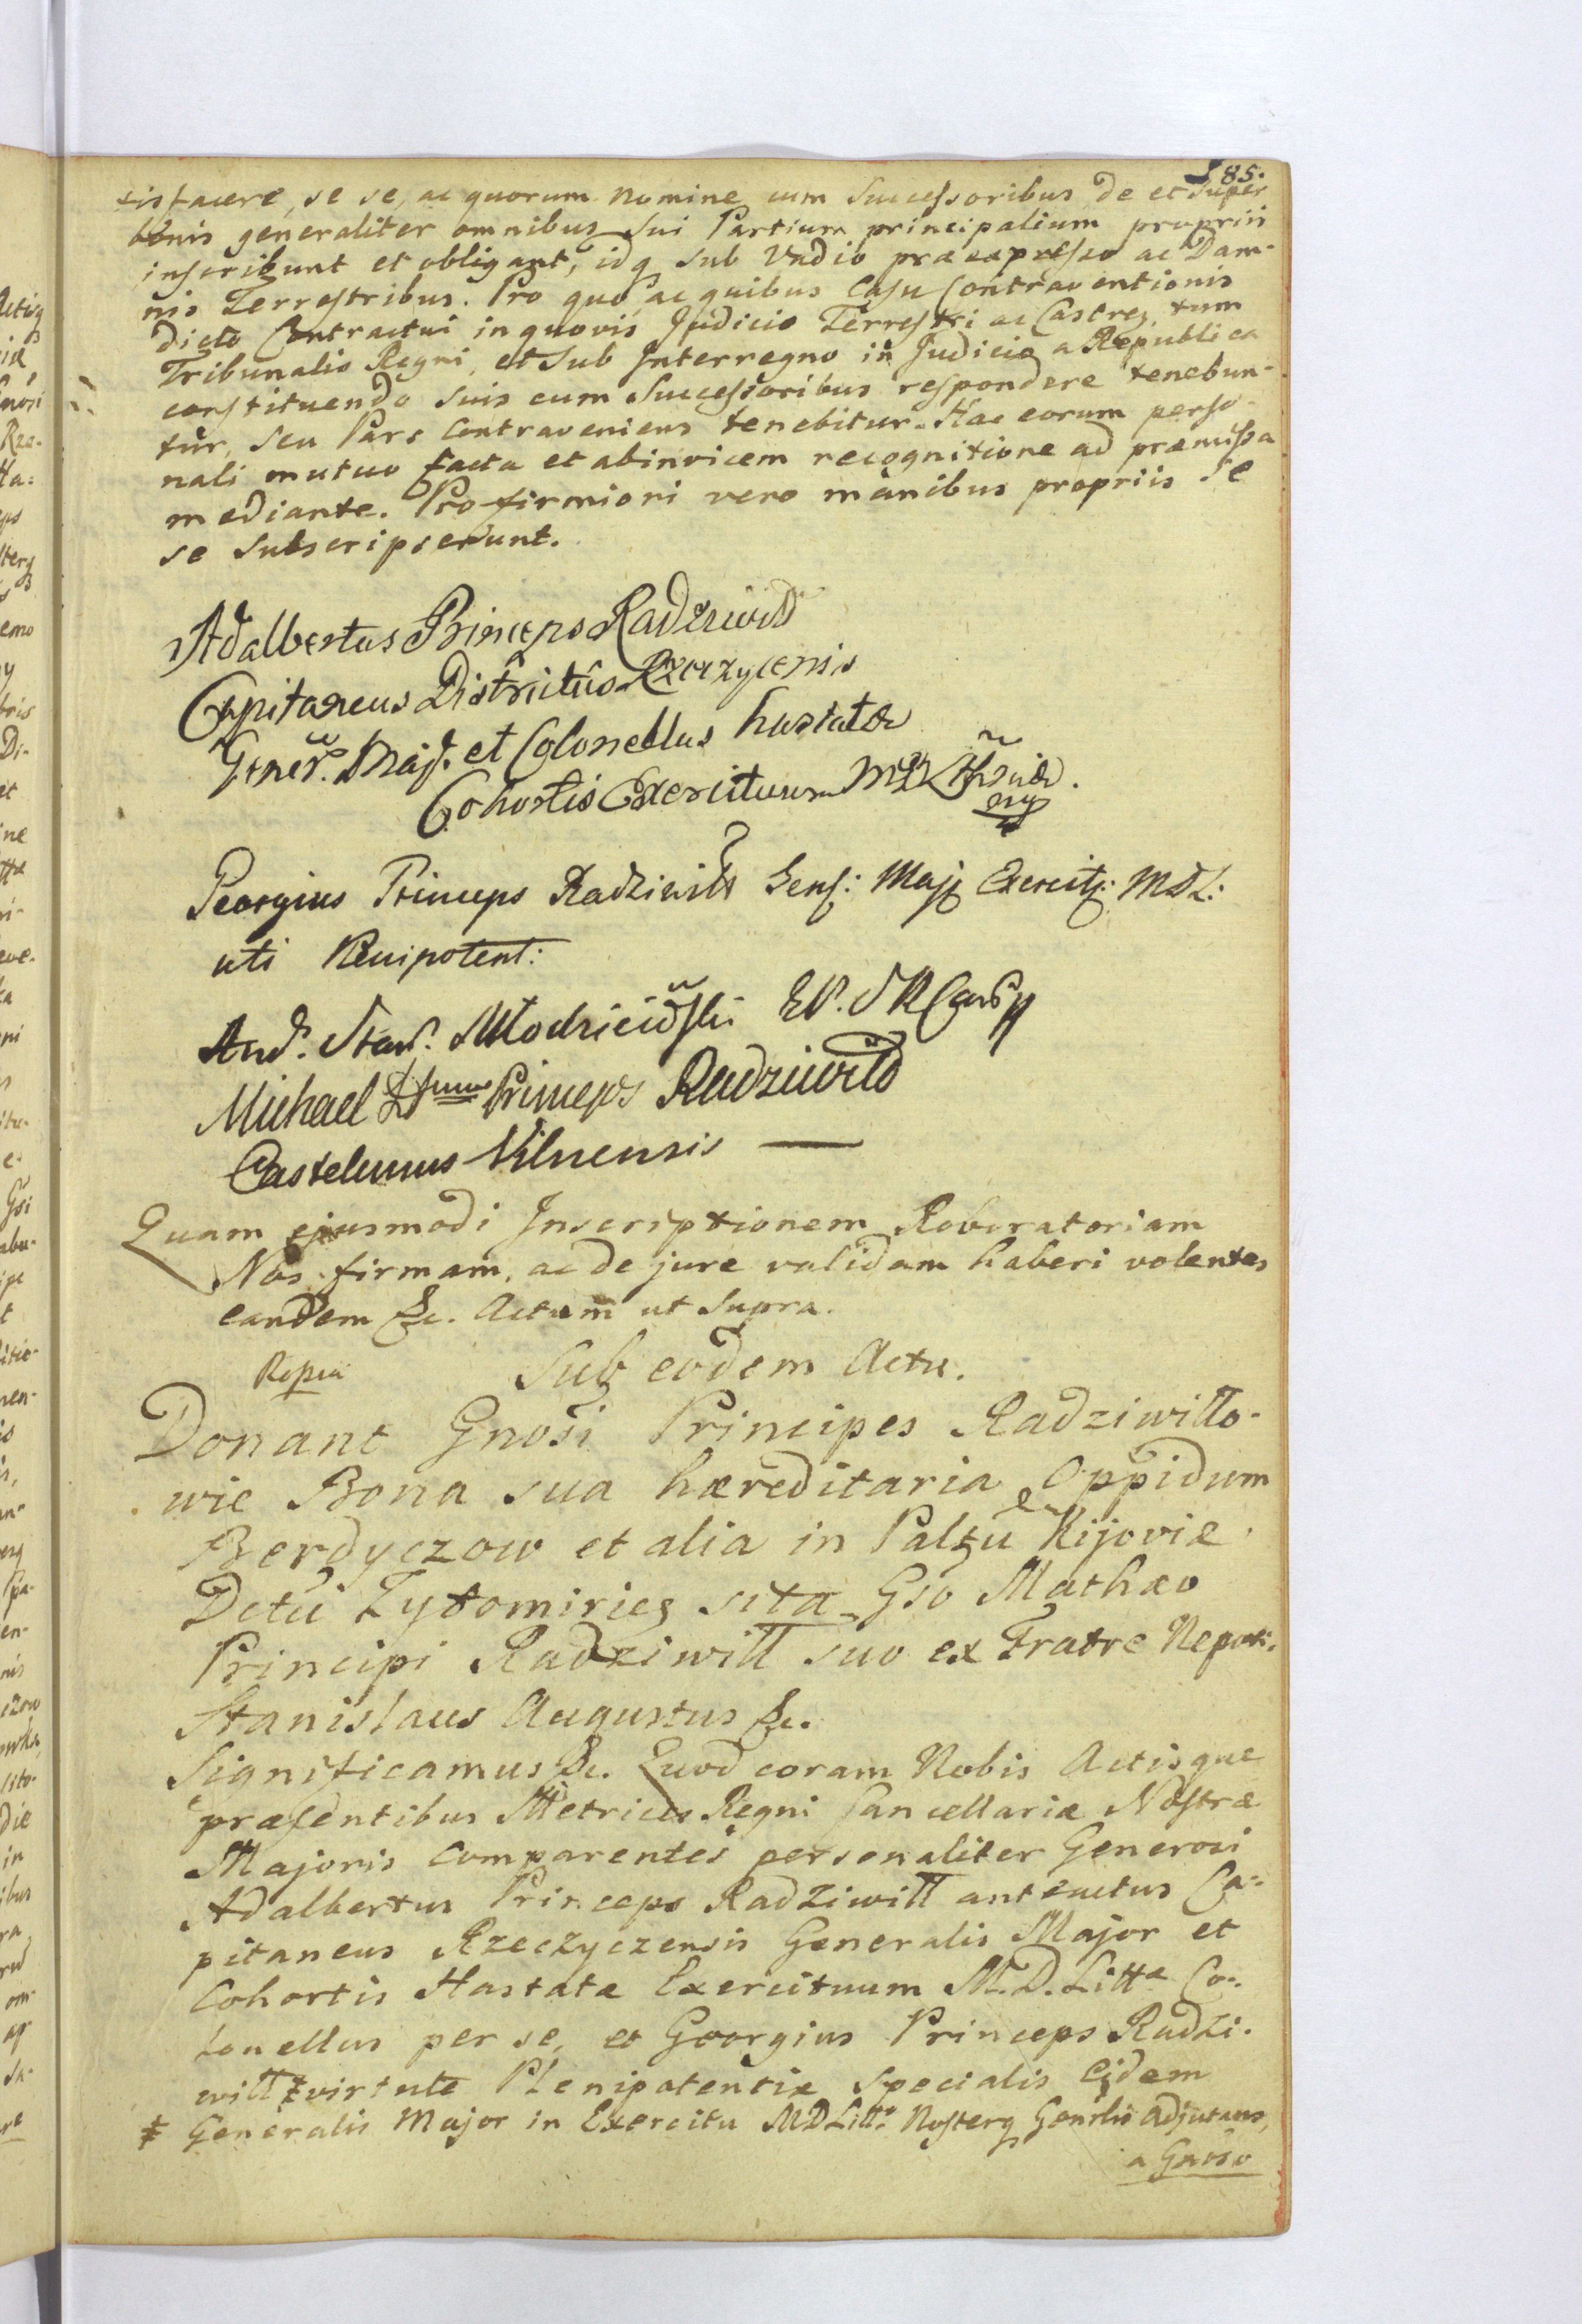 385.
tisfacere, se se, ac quorum nomine cum Successoribus de et super
bonis generaliter omnibus sui Partium principalium propriis
inscribunt et obligant, idq sub Vadio praeexpresso ac Dam-
nis Terrestribus. Pro quo, ac quibus Casu Contraventionis
dicto Contractui in quovis Judicio Terrestri ac Castreq tum
Tribunalis Regni, et sub Interregno in Judicio a Republica
constituendo suis cum Successoribus respondere tenebun-
tur, seu Pars Contraveniens tenebitur. Hac eorum perso-
nali mutuo facta et abinvicem recognitione ad præmissa
mediante. Pro firmiori vero manibus propriis se
se subscripserunt.
Adalbertus Princeps Radziwill
Capitaneus Districtûs Rzeczycensis
Gener. Maj. et Colonellus hastatæ
Cohortis Exercituum MDL
Georgius Princeps Radziwill Gen: Maj Exercit: MDL:
uti Plenipotent:
And. Stan. Młodzieiowski EP. S R Canc
Michael Princeps Radziwill
Castelanus Vilnensis —
Quam ejusmodi Inscriptionem Roboratoriam
Nos firmam, ac de jure validam haberi volentes
eandem &c. Actum ut supra.
Sub eodem Actu.
Donant Gnosi Principes Radziwillo-
wie Bona sua hæreditaria Oppidum
Berdyczow et alia in Paltu Kijoviæ
Dctu Zytomirieg sita Gso Mathæo
Principi Radziwill suo ex Fratre Nepoti.
Stanislaus Augustus &c.
Significamus &c. Quod coram Nobis Actisque
præsentibus Metrices Regni Cancellariæ Nostræ
Majoris Comparentes personaliter Generosi
Adalbertus Princeps Radziwill antenctus Ca-
pitaneus Rzeczyczensis Generalis Major et
Cohortis Hastatæ Exercituum M.D. Littæ Co-
lonellus per se, et Georgius Princeps Radzi-
will ‡ virtute Plenipotentiæ specialis Eidem
‡ Generalis Major in Exercitu MDLitt: Nosterq Genrlis Adjutans,
a Gnoso